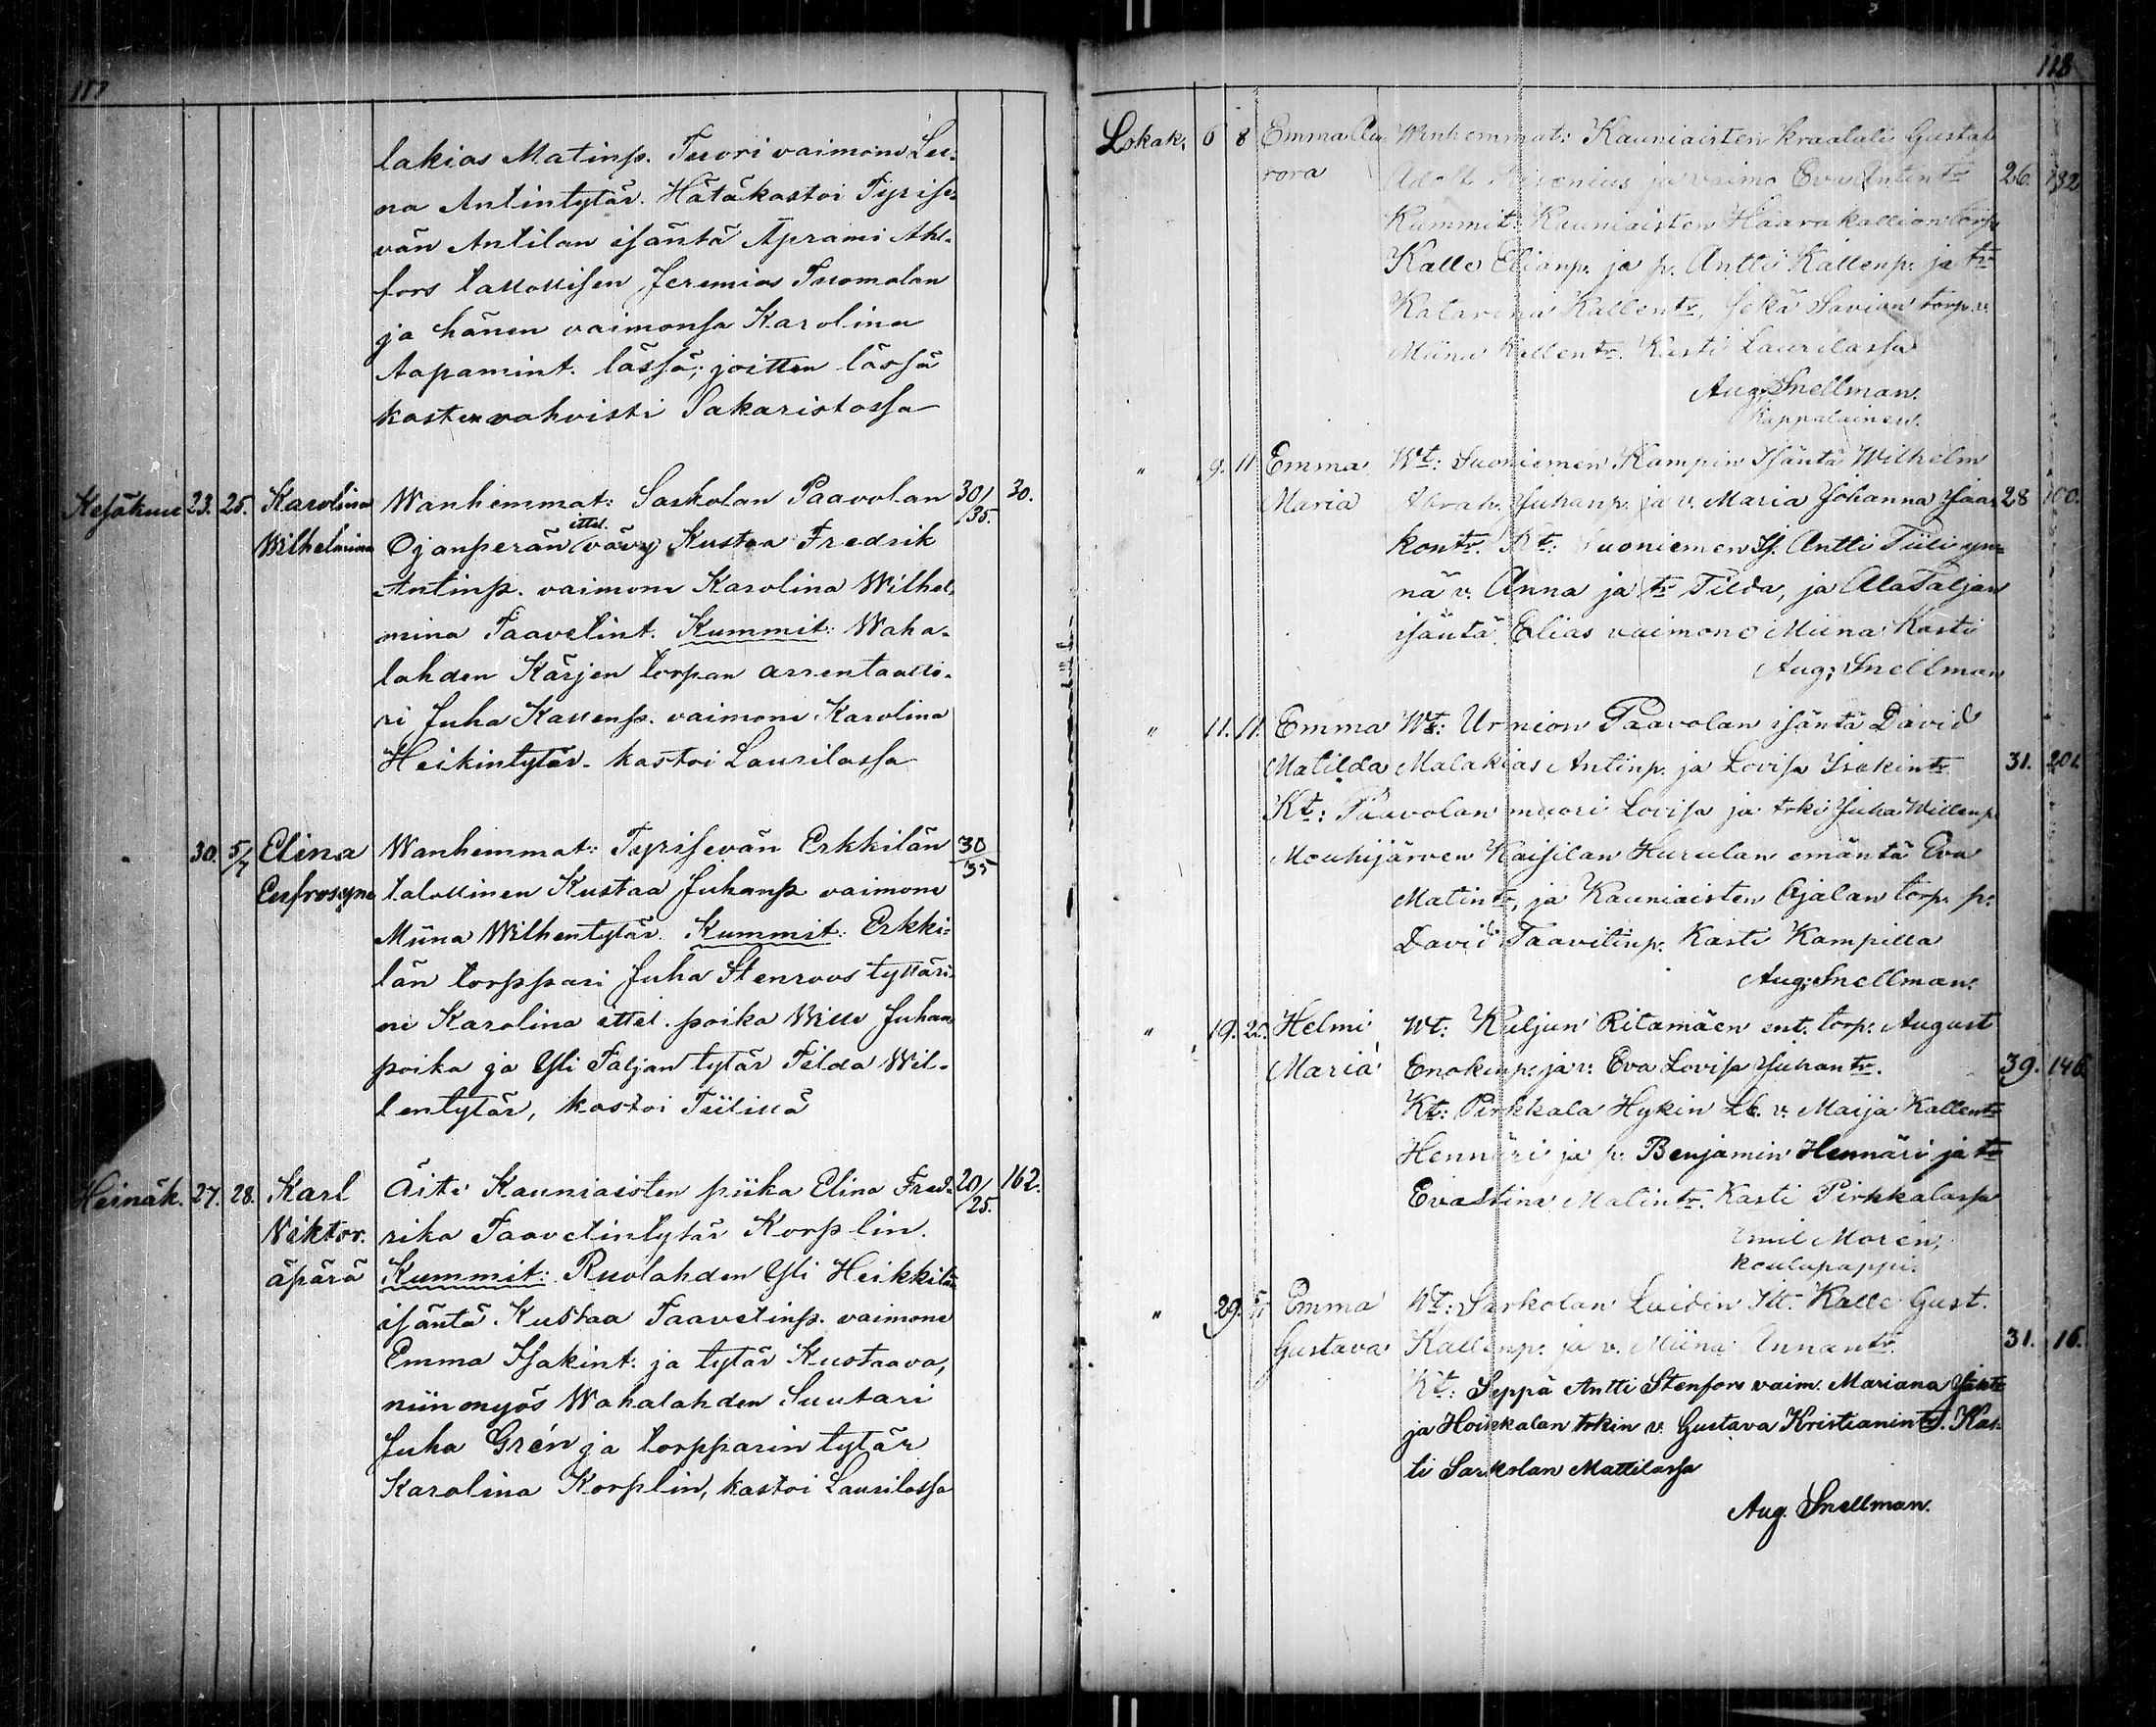 117
lakias Matinp. Tuori vaimone Lee-
na Antintytär. Hätäkastoi Tyrise-
vän Anttilan isäntä Äprami Ahl-
fors talollisen Jeremias Tuomolan
ja hänen vaimonsa Karolina
Aapamint. läsfä; joitten läsfä
kasten vahvisti Sakaristosfa
Kesäkuu 23. 25. Karolina Wanhemmat: Saskolan Paavolan 30/35. 30.
Wilhelmina Ojanperän ittel. vävy Kustaa Fredrik
Antinp. vaimone Karolina Wilhel-
mina Taavetint. Kummit: Waha-
lahden Kärjen torpan arrentaatto-
ri Juha Kallenp. vaimone Karolina
Heikintytär. kastoi Laurilasfa
30. 5/7 Elina Wanhemmat: Tyrisevän Erkkilän 30/35
Eufrosyne talollinen Kustaa Juhanp vaimone
Miina Wilhentytär. Kummit: Erkki-
län torppari Juha Stenroos tyttäri-
ne Karolina ettel. poika Wille Juhan
poika ja Yli Taljan tytär Tilda Wil-
lentytär, kastoi Tiilillä
Heinäk. 27. 28. Karl Äiti Kauniaisten piika Elina Fred- 20/25. 162.
Viktor. rika Taavetintytär Korplin.
äpärä Kummit: Ruolahden Yli Heikkilän
isäntä Kustaa Taavetinp. vaimone
Emma Isakint: ja tytär Kustaava,
niin myös Wahalahden Suutari
Juha Grén ja torpparin tytär
Karolina Korplin, kastoi Laurilasfa
118
Lokak. 6 8 Emma Au- Wanhemmat: Kauniaisten kraatali Gustaf
rora Adolf ja vaimo Eva Antintr 26. 132
Kummit: Kauniaisten Haarakallion torp.
Kalle Elianp. ja p. Antti Kallenp. ja tr
Katarina Kallentr, sekä Savian torp. v.
Miina Kallentr. Kasti Laurilasfa
Aug. Snellman.
Kappalainen.
" 9. 11 Emma Wt: Suoniemen Kampin Isäntä Wilhelm
Maria Abrah. Juhanp. ja v. Maria Johanna Jaa- 28 100.
kontr. Kt: Suoniemen Is. Antti Tiili yn-
nä v. Anna ja tr Tilda, ja AlaTaljan
isäntä Elias vaimone Miina Kasti
Aug; Snellman
" 11. 11. Emma Wt: Urmion Paavolan isäntä David
Matilda Malakias Antinp. ja Lovisa Isakintr. 31. 201.
Kt: Paavolan muori Lovisa ja trki Juha Willenp.
Mouhijärven Kaisilan Hurulan emäntä Eva
Matintr, ja Kauniaisten Ojalan torp. p.
David Taavitinp. Kasti Kampilla
Aug; Snellman.
" 19. 20. Helmi Wt: Kuljun Ritamäen ent. torp. August
Maria Enokinp. ja v. Eva Lovisa Juhantr. 39. 146
Kt: Pirkkala Hykin Lb. v. Maija Kallentr
Hennäri ja p. Benjamin Hennäri ja tr
Evastina Matintr. Kasti Pirkkalassa
Emil Morén,
koulupappi.
" 29. Emma Wt: Sarkolan Luidin Itt. Kalle Gust.
Gustava Kallenp. ja v. Miina Annantr. 31. 16.
Kt: Seppä Antti Stenfors vaim. Mariana
ja Hoikkalan trkin v. Gustava Kristianintr. Kas-
ti Sarkolan Mattilasfa
Aug. Snellman.